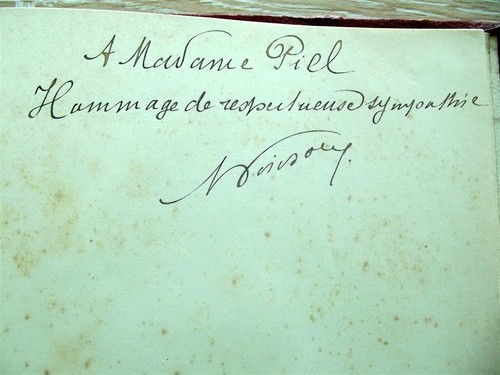 A Madame Piel
Hommage de respectueuse sympathie